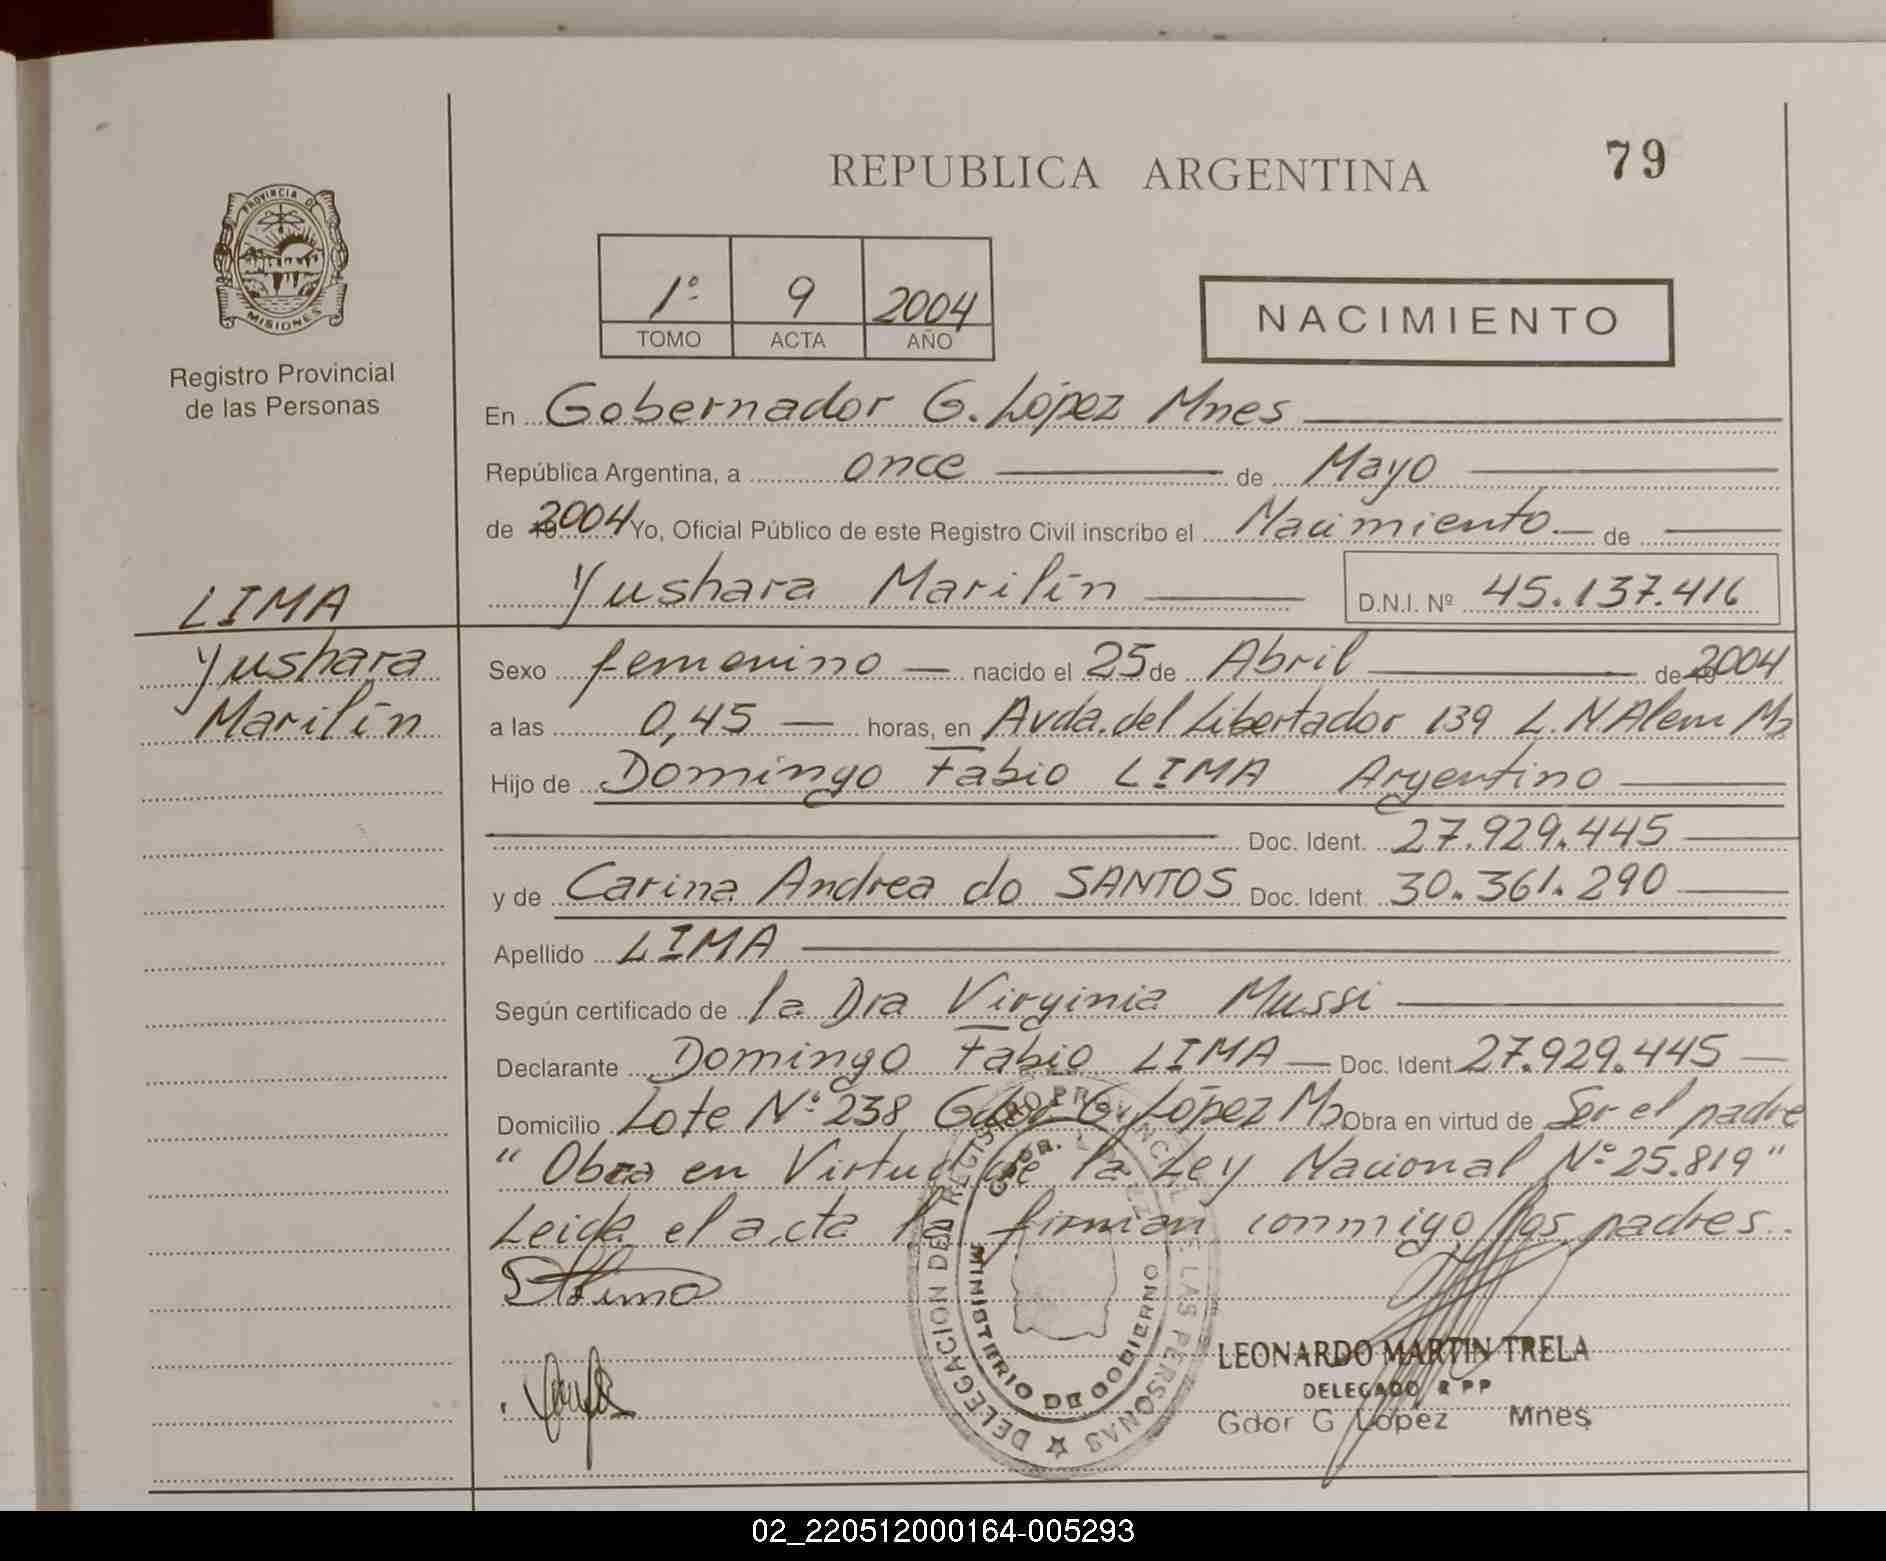 79
REPUBLICA ARGENTINA
PROVINCIA DE
MISIONES
Registro Provincial
de las Personas
1º 9 2004
TOMO ACTA AÑO
NACIMIENTO
En Gobernador G. López Mnes
República Argentina, a once de Mayo
de 2004 Yo, Oficial Público de este Registro Civil inscribo el Nacimiento de
Yushara Marilín D.N.I. Nº 45.137.416
LIMA
Yushara
Marilín
Sexo femenino nacido el 25 de Abril de 2004
a las 0,45 horas, en Avda. del Libertador 139 L.N.Alem Ms
Hijo de Domingo Fabio LIMA Argentino
Doc. Ident. 27.929.445
y de Carina Andrea do SANTOS Doc. Ident. 30.361.290
Apellido LIMA
Según certificado de la Dra Virginia Mussi
Declarante Domingo Fabio LIMA Doc. Ident 27.929.445
Domicilio Lote Nº 238 Gdor G López Ms Obra en virtud de Ser el padre
" Obra en Virtud de la Ley Nacional Nº 25.819 "
Leida el acta la firman conmigo los padres.
DELEGACION DEL REGISTRO PROVINCIAL DE LAS PERSONAS
MINISTERIO DE GOBIERNO
LEONARDO MARTIN TRELA
DELEGADO R P P
Gdor G López Mnes
02_220512000164-005293